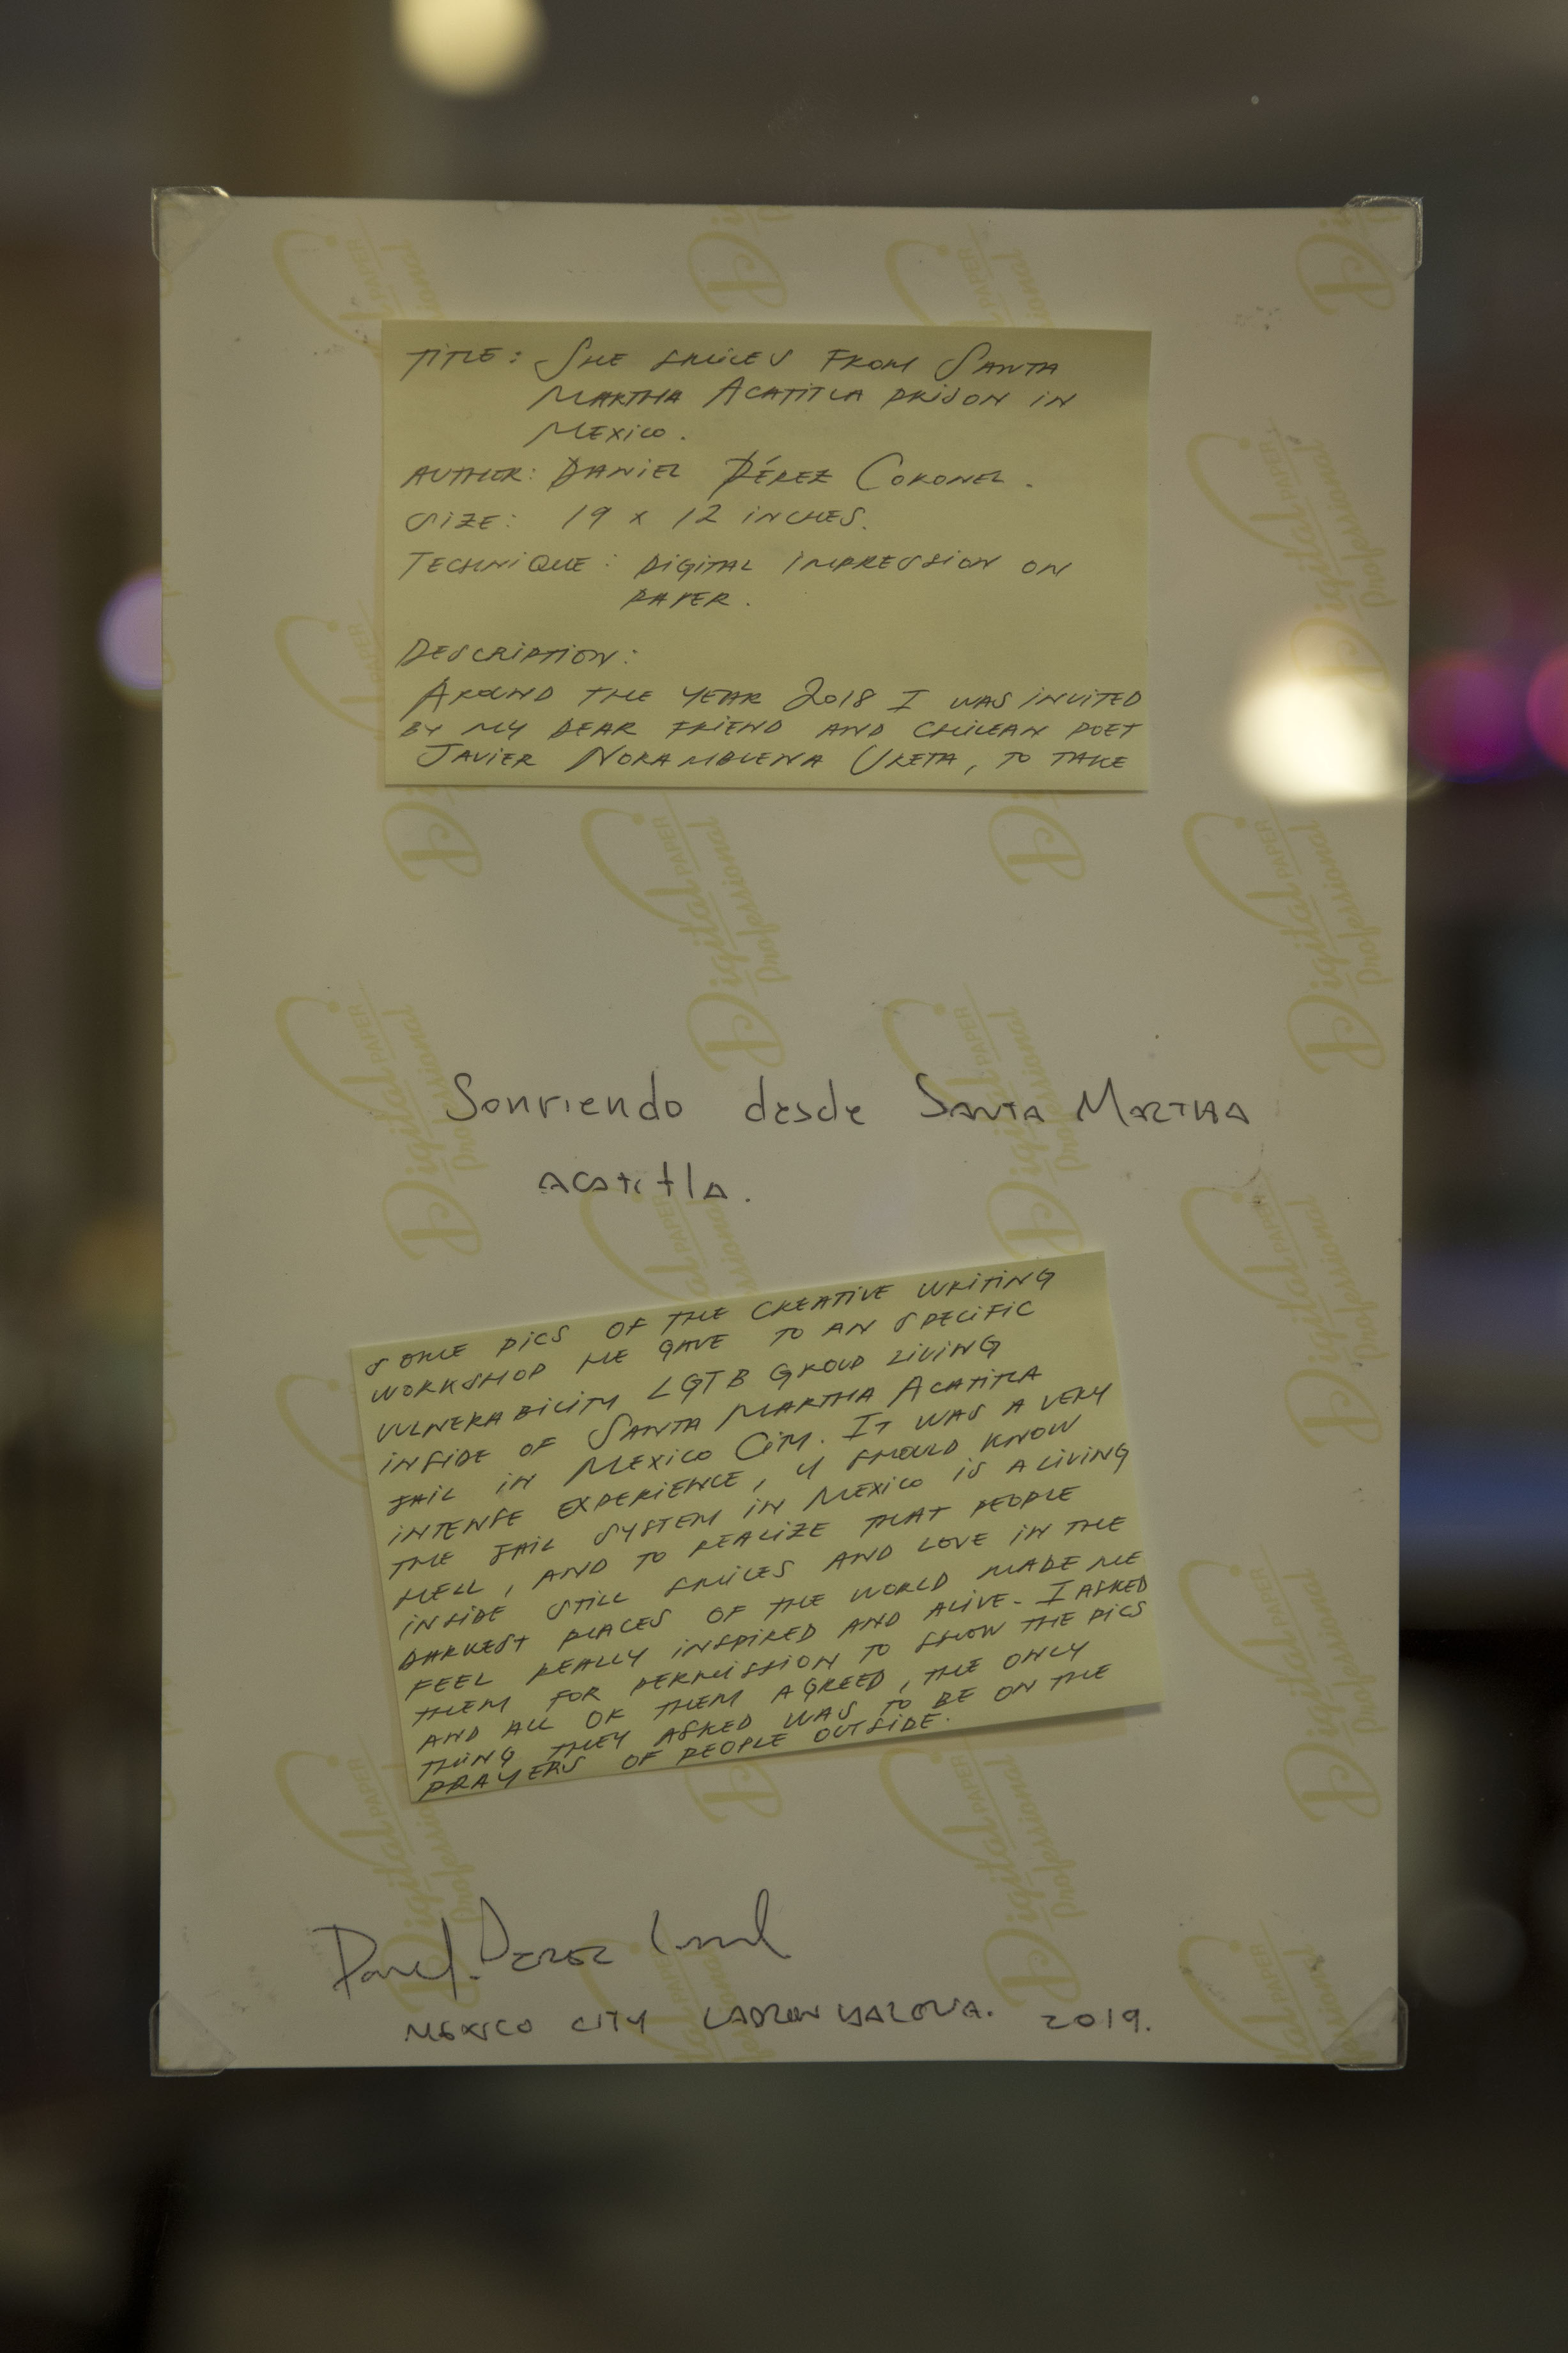 TITLE: SHE SMILES FROM SANTA
MARTHA ACATITLA PRISON IN
MEXICO.
AUTHOR: DANIEL PÉREZ CORONEL.
SIZE: 19 x 12 INCHES.
TECHNIQUE: DIGITAL IMPRESSION ON
PAPER.
DESCRIPTION:
AROUND THE YEAR 2018 I WAS INVITED
BY MY DEAR FRIEND AND CHILEAN POET
JAVIER NORAMBUENA URETA, TO TAKE
Sonriendo desde SANTA MARTHA
acatitla.
SOME PICS OF THE CREATIVE WRITING
WORKSHOP HE GAVE TO AN SPECIFIC
VULNERABILITY LGTB GROUP LIVING
INSIDE OF SANTA MARTHA ACATITLA
JAIL IN MEXICO CITY. IT WAS A VERY
INTENSE EXPERIENCE, U SHOULD KNOW
THE JAIL SYSTEM IN MEXICO IS A LIVING
HELL, AND TO REALIZE THAT PEOPLE
INSIDE STILL SMILES AND LOVE IN THE
DARKEST PLACES OF THE WORLD MADE ME
FEEL REALLY INSPIRED AND ALIVE. I ASKED
THEM FOR PERMISSION TO SHOW THE PICS
AND ALL OF THEM AGREED, THE ONLY
THING THEY ASKED WAS TO BE ON THE
PRAYERS OF PEOPLE OUTSIDE.
Daniel Perez Coronel
MEXICO CITY 2019.
Digital PAPER
Professional